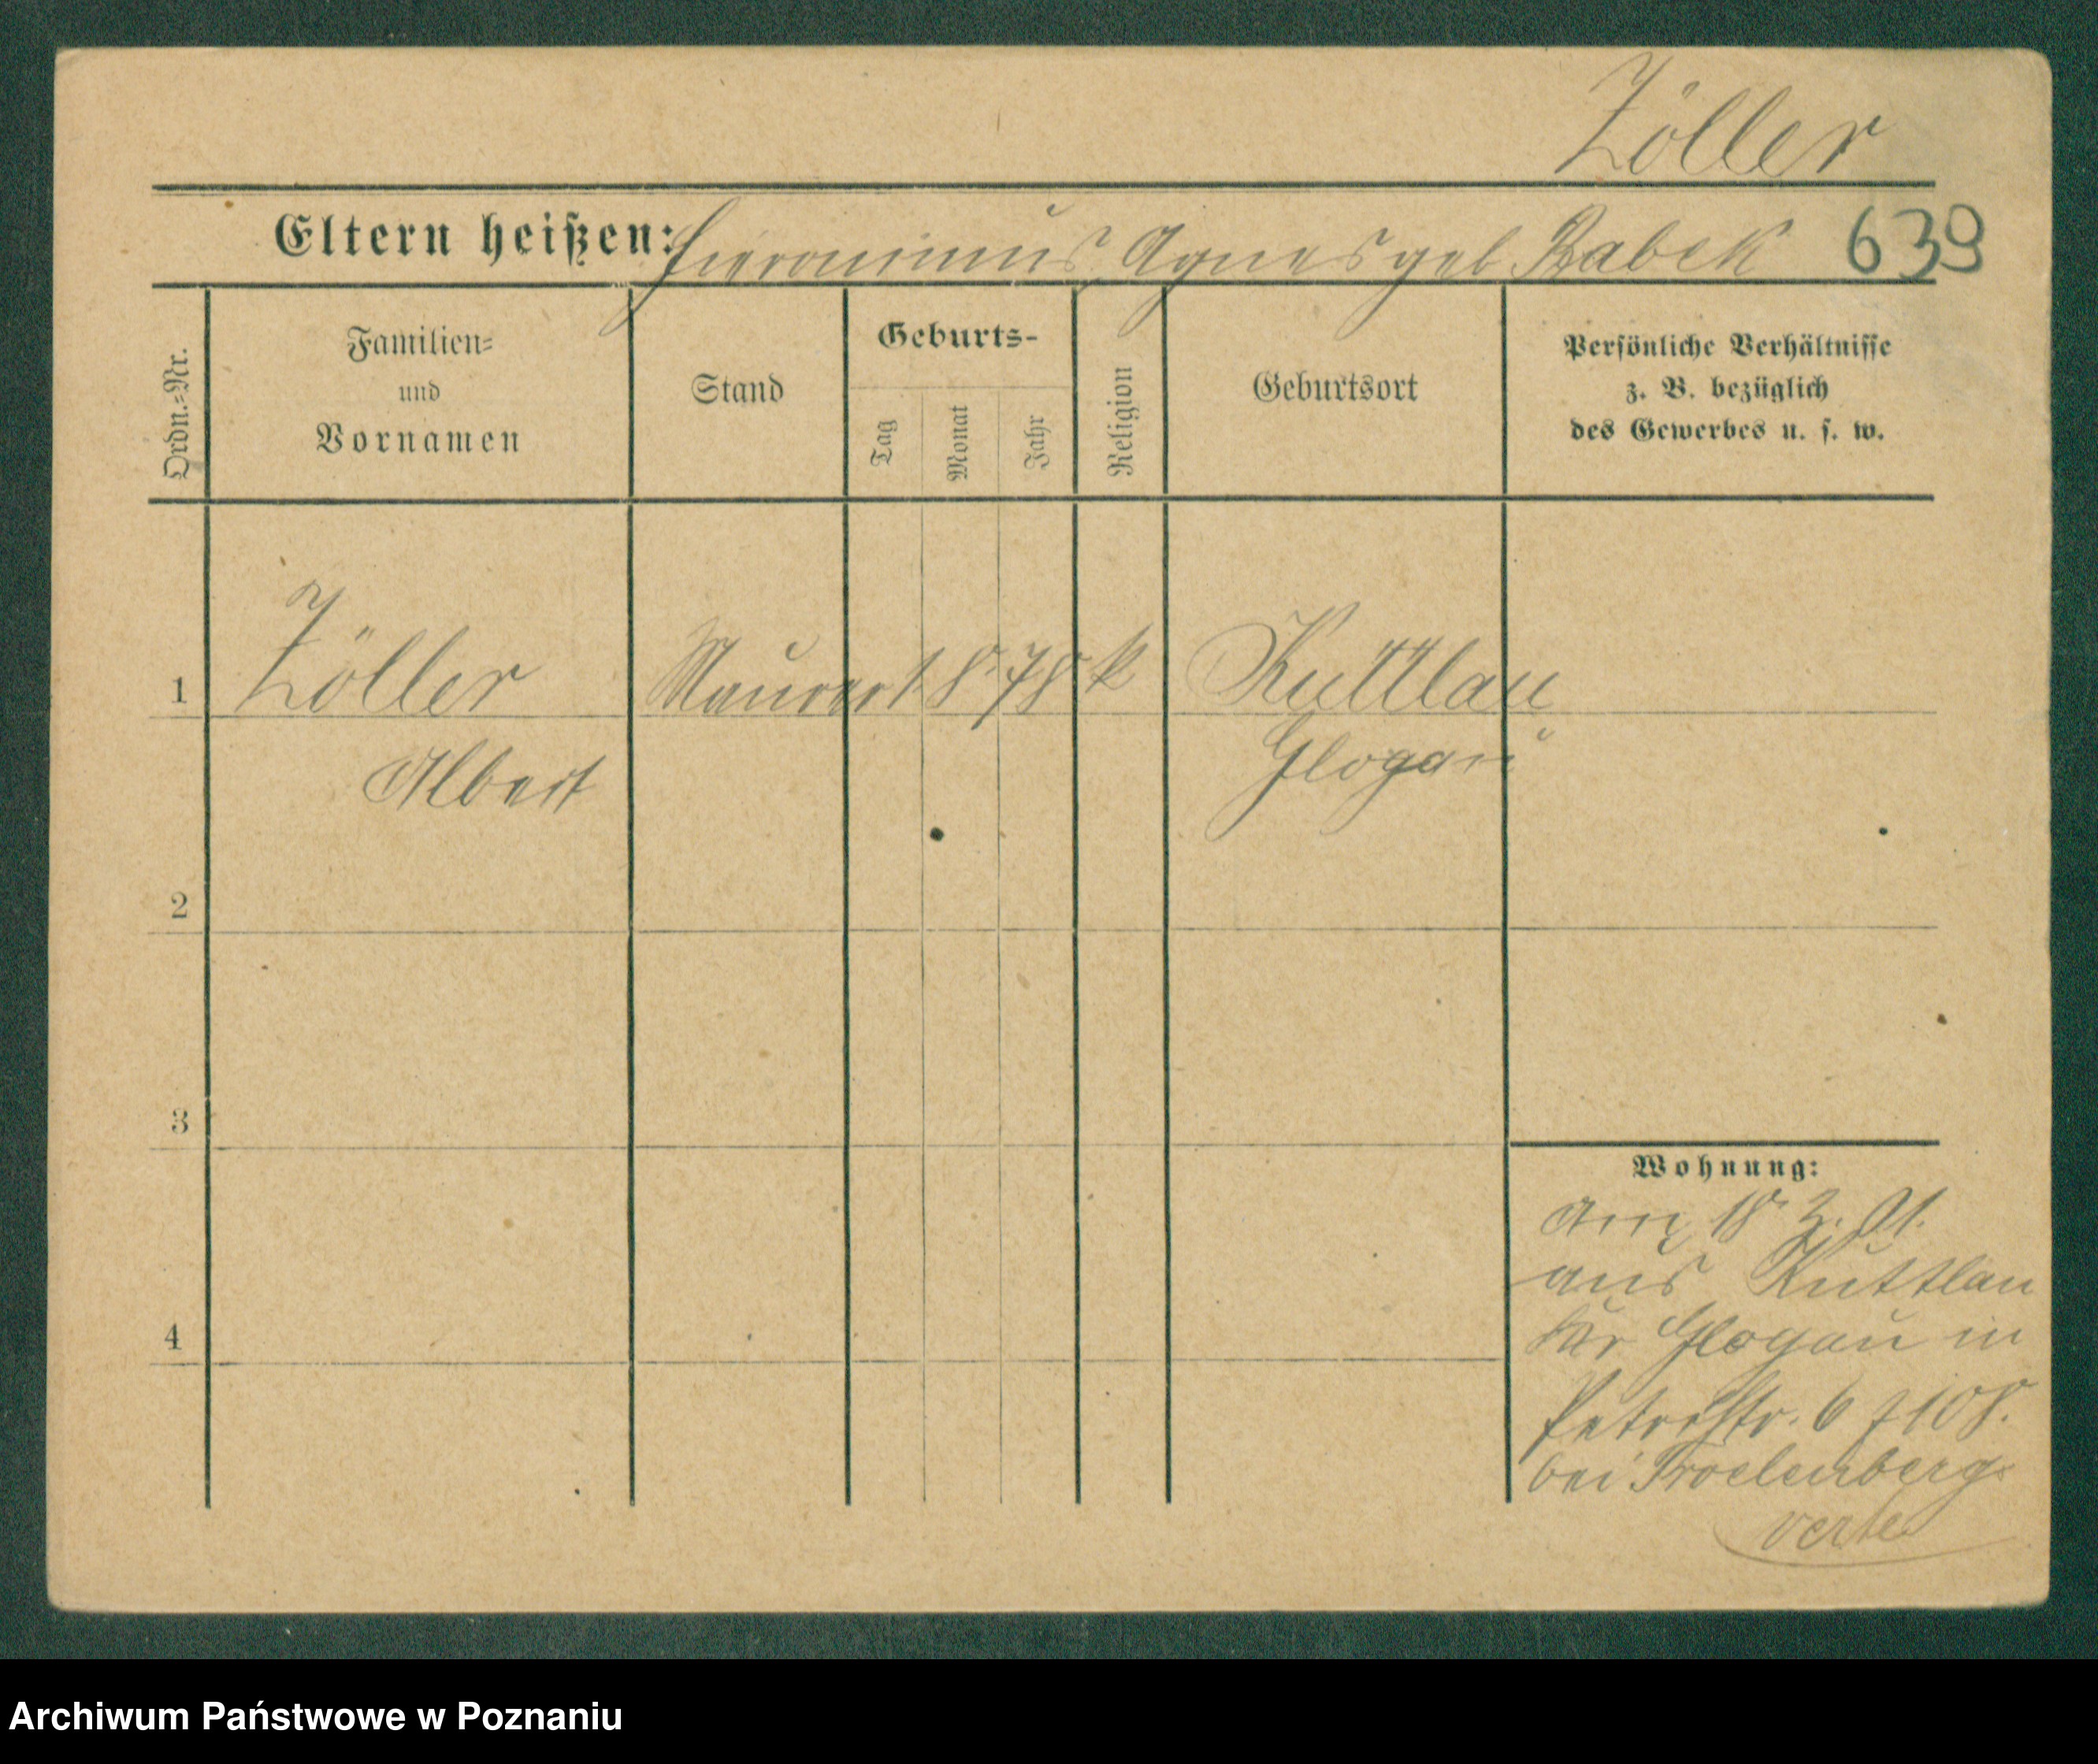 Zöller
Eltern heißen: Hieronimus, Agnes geb Babek 639
Ordn.-Nr.
Familien-
und
Vornamen
Stand
Geburts-
Tag
Monat
Jahr
Religion
Geburtsort
Persönliche Verhältnisse
z. B. bezüglich
des Gewerbes u. s. w.
1 Zöller Maurer 1 8. 78 k Kuttlau
Albert Glogau
2
3
4
Wohnung:
Am 18. 3. 01.
aus Kuttlau
Kr Glogau in
Petristr. 6
bei
verte
Archiwum Państwowe w Poznaniu